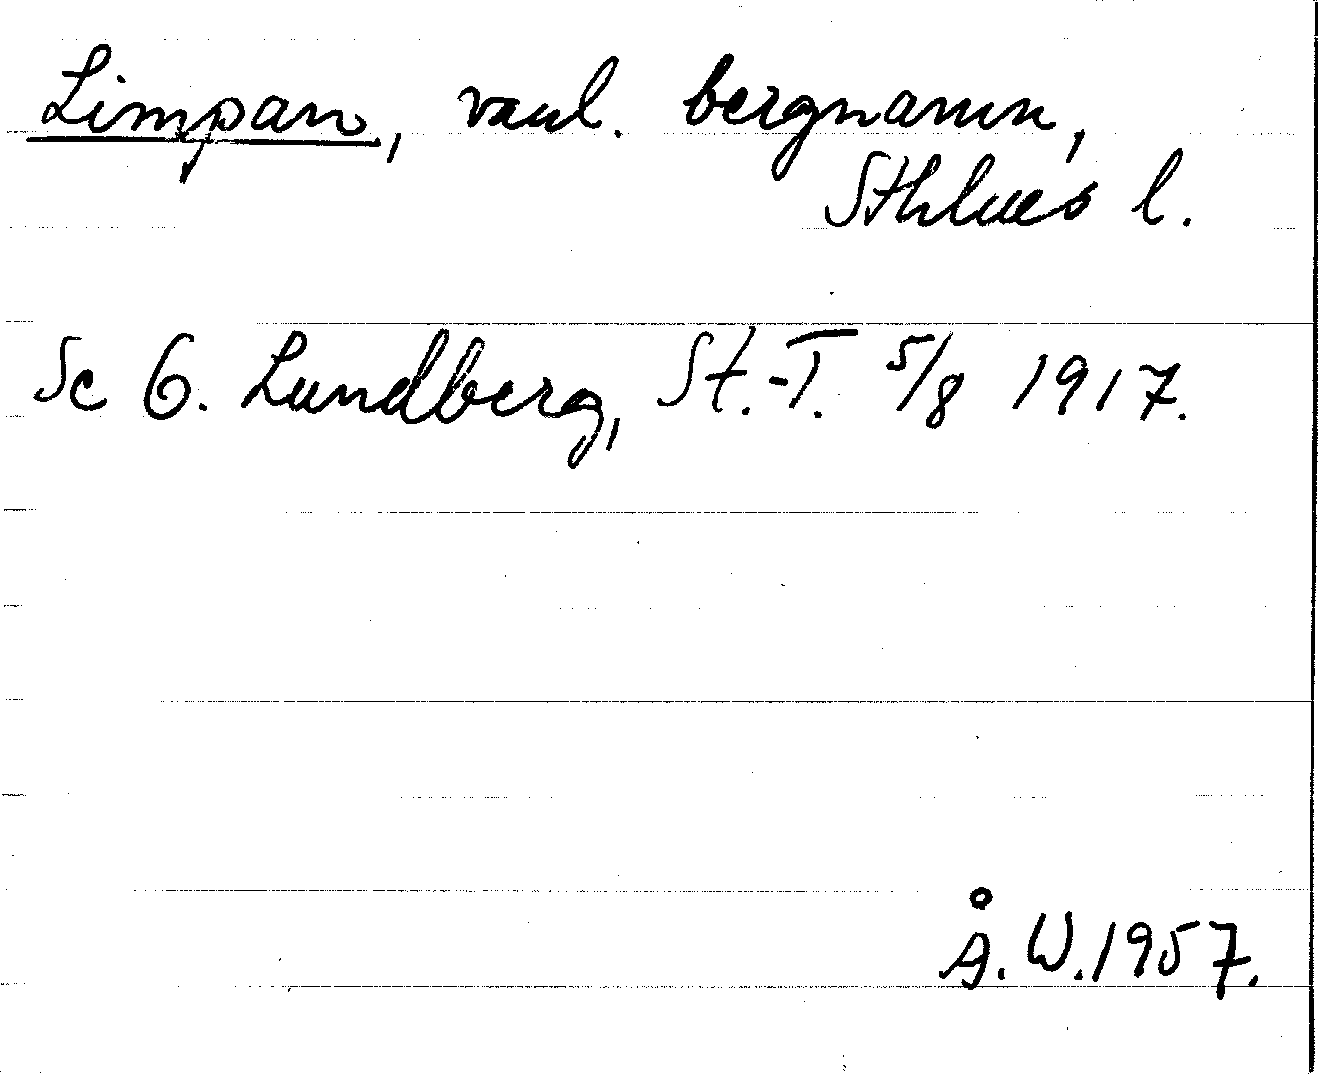 Limpan, vanl. bergnamn,
Sthlms l.
Se G. Lundberg, St.-T. 5/8 1917.
Å. W. 1957.